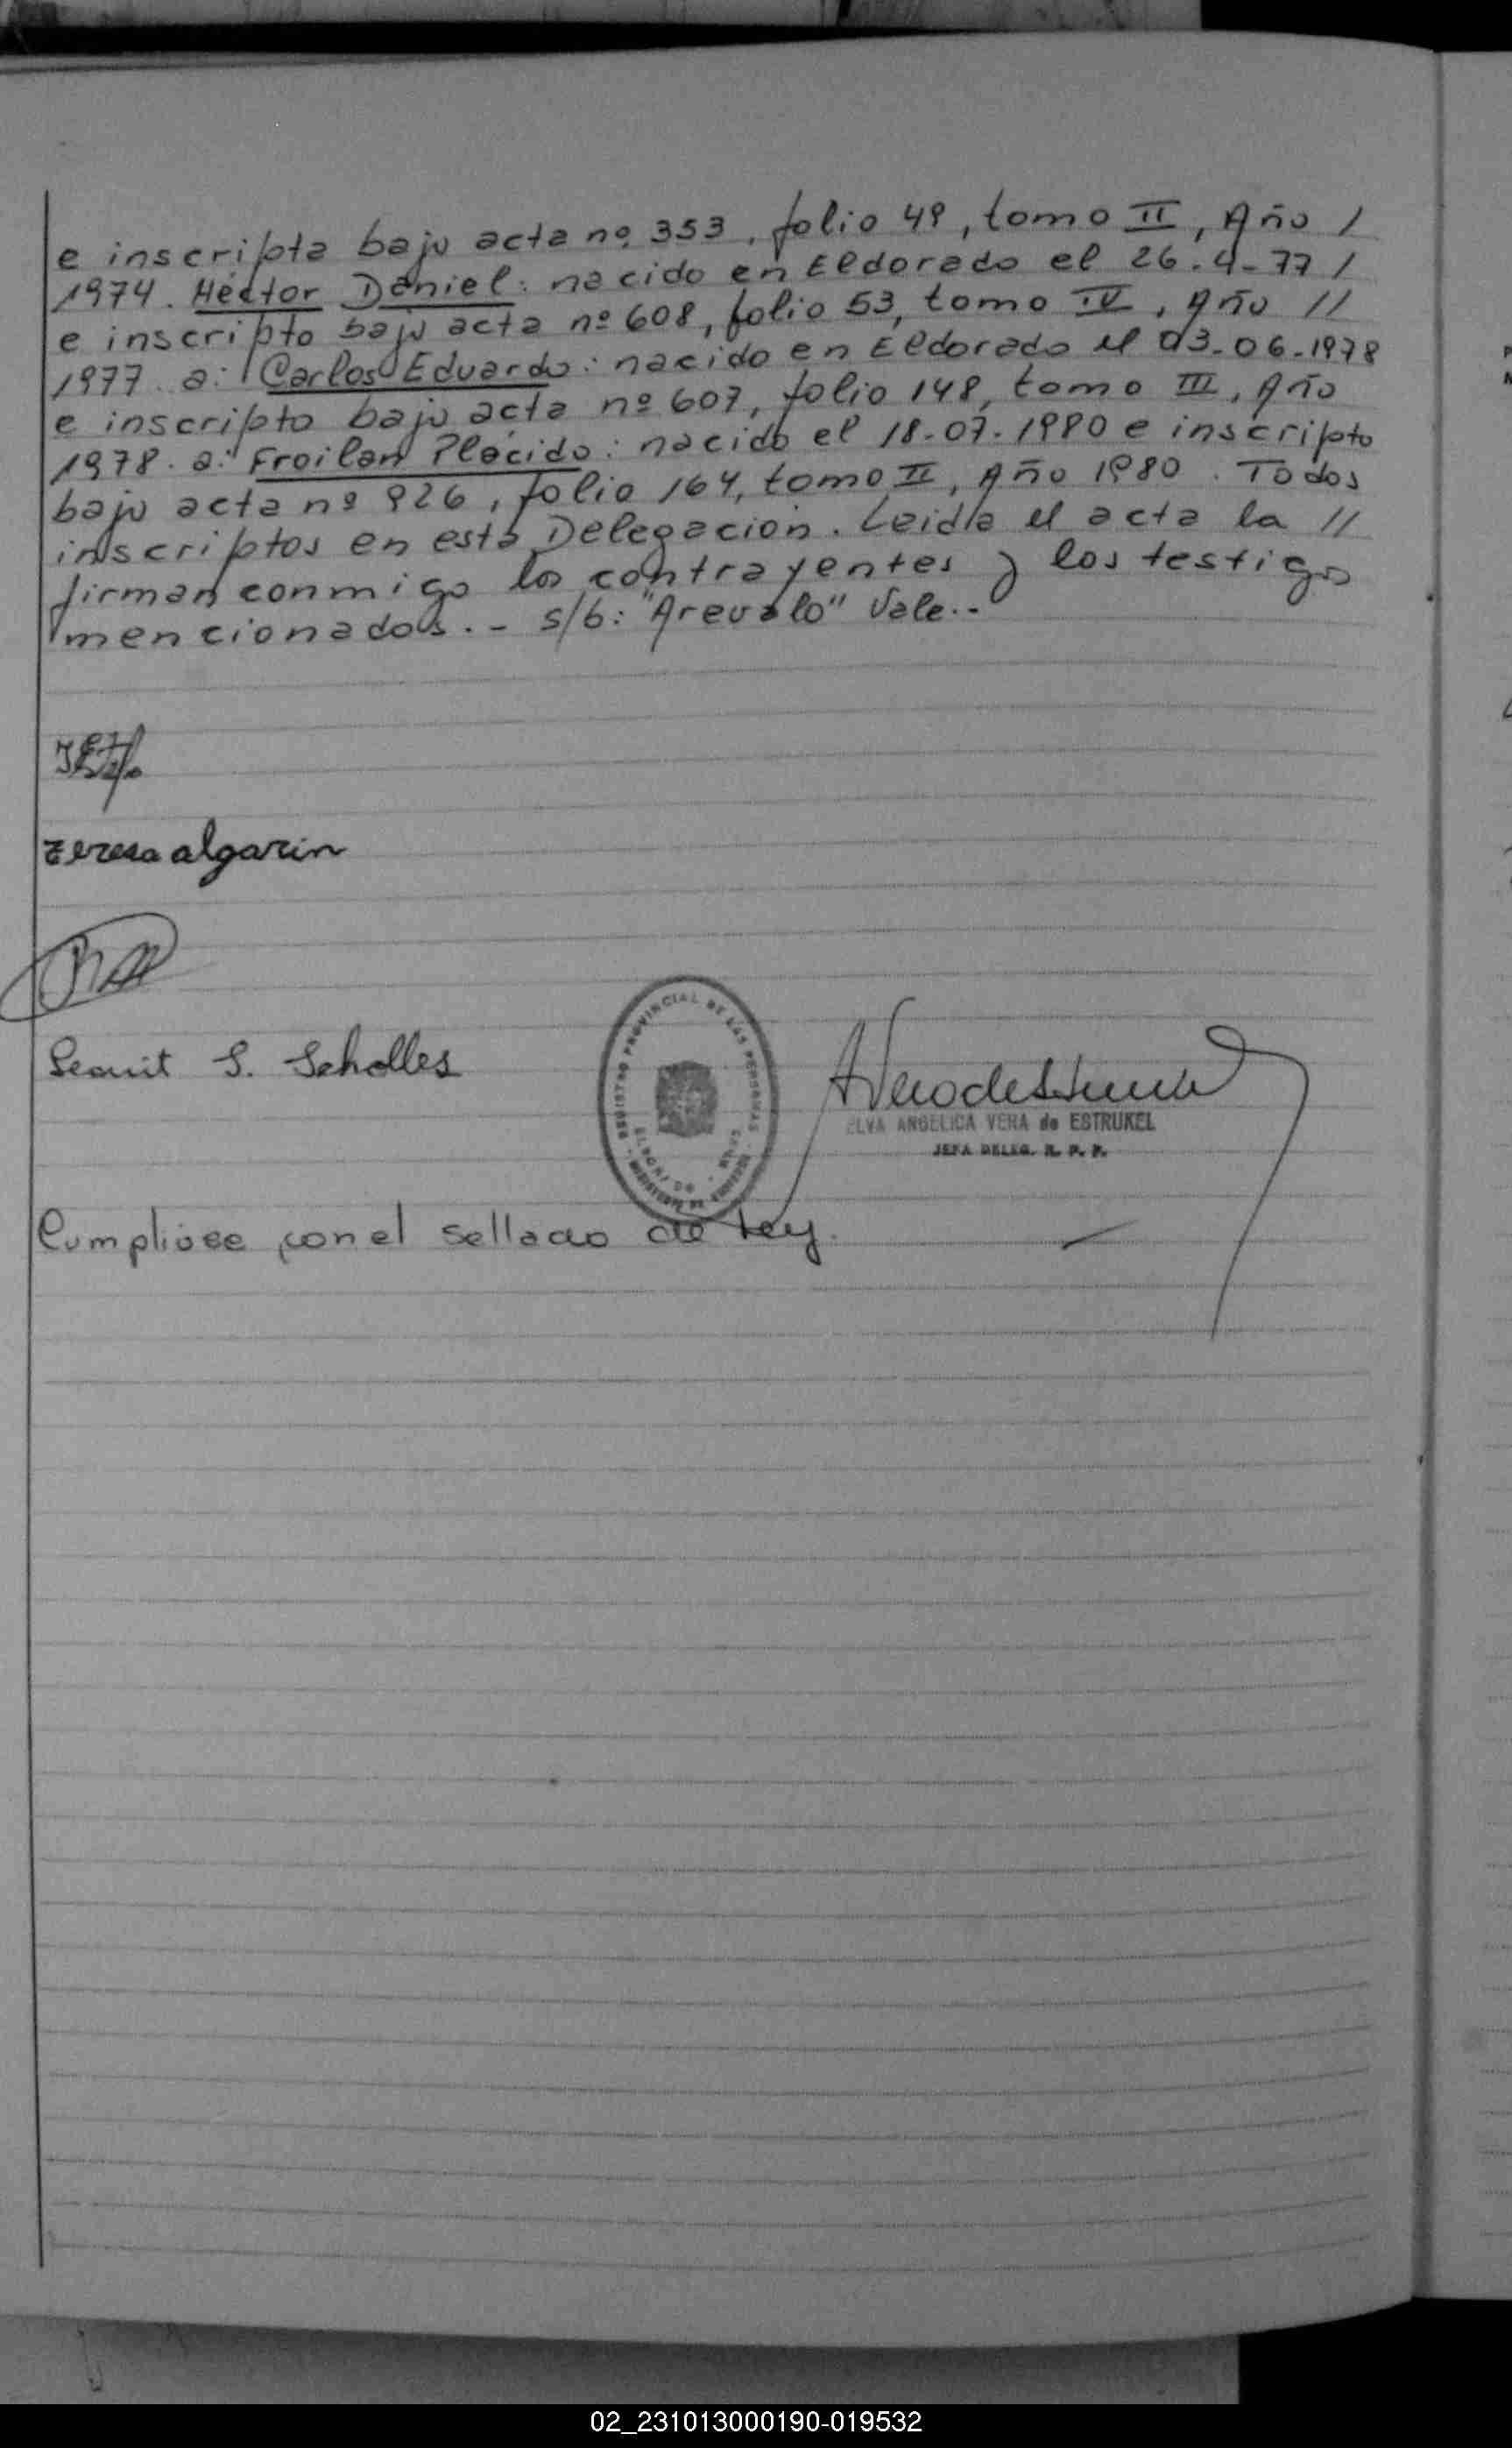 e inscripta bajo acta nº 353, folio 49, tomo II, Año /
1974. Héctor Daniel: nacido en Eldorado el 26-4-77 /
e inscripto bajo acta nº 608, folio 53, tomo IV, Año //
1977. a: Carlos Eduardo: nacido en Eldorado el 03-06-1978
e inscripto bajo acta nº 607, folio 148, tomo III, Año
1978. a: Froilan Plácido: nacido el 18-07-1980 e inscripto
bajo acta nº 926, folio 164, tomo II, Año 1980. Todos
inscriptos en esta Delegación. Leida el acta la //
firman conmigo los contrayentes y los testigos
mencionados.- s/b: "Arevalo" Vale.-
teresa algarin
S. Scholles
REGISTRO PROVINCIAL DE LAS PERSONAS
ELVA ANGELICA VERA de ESTRUKEL
JEFA DELEG. R. P. P.
Cumpliose con el sellado de Ley.
02_231013000190-019532